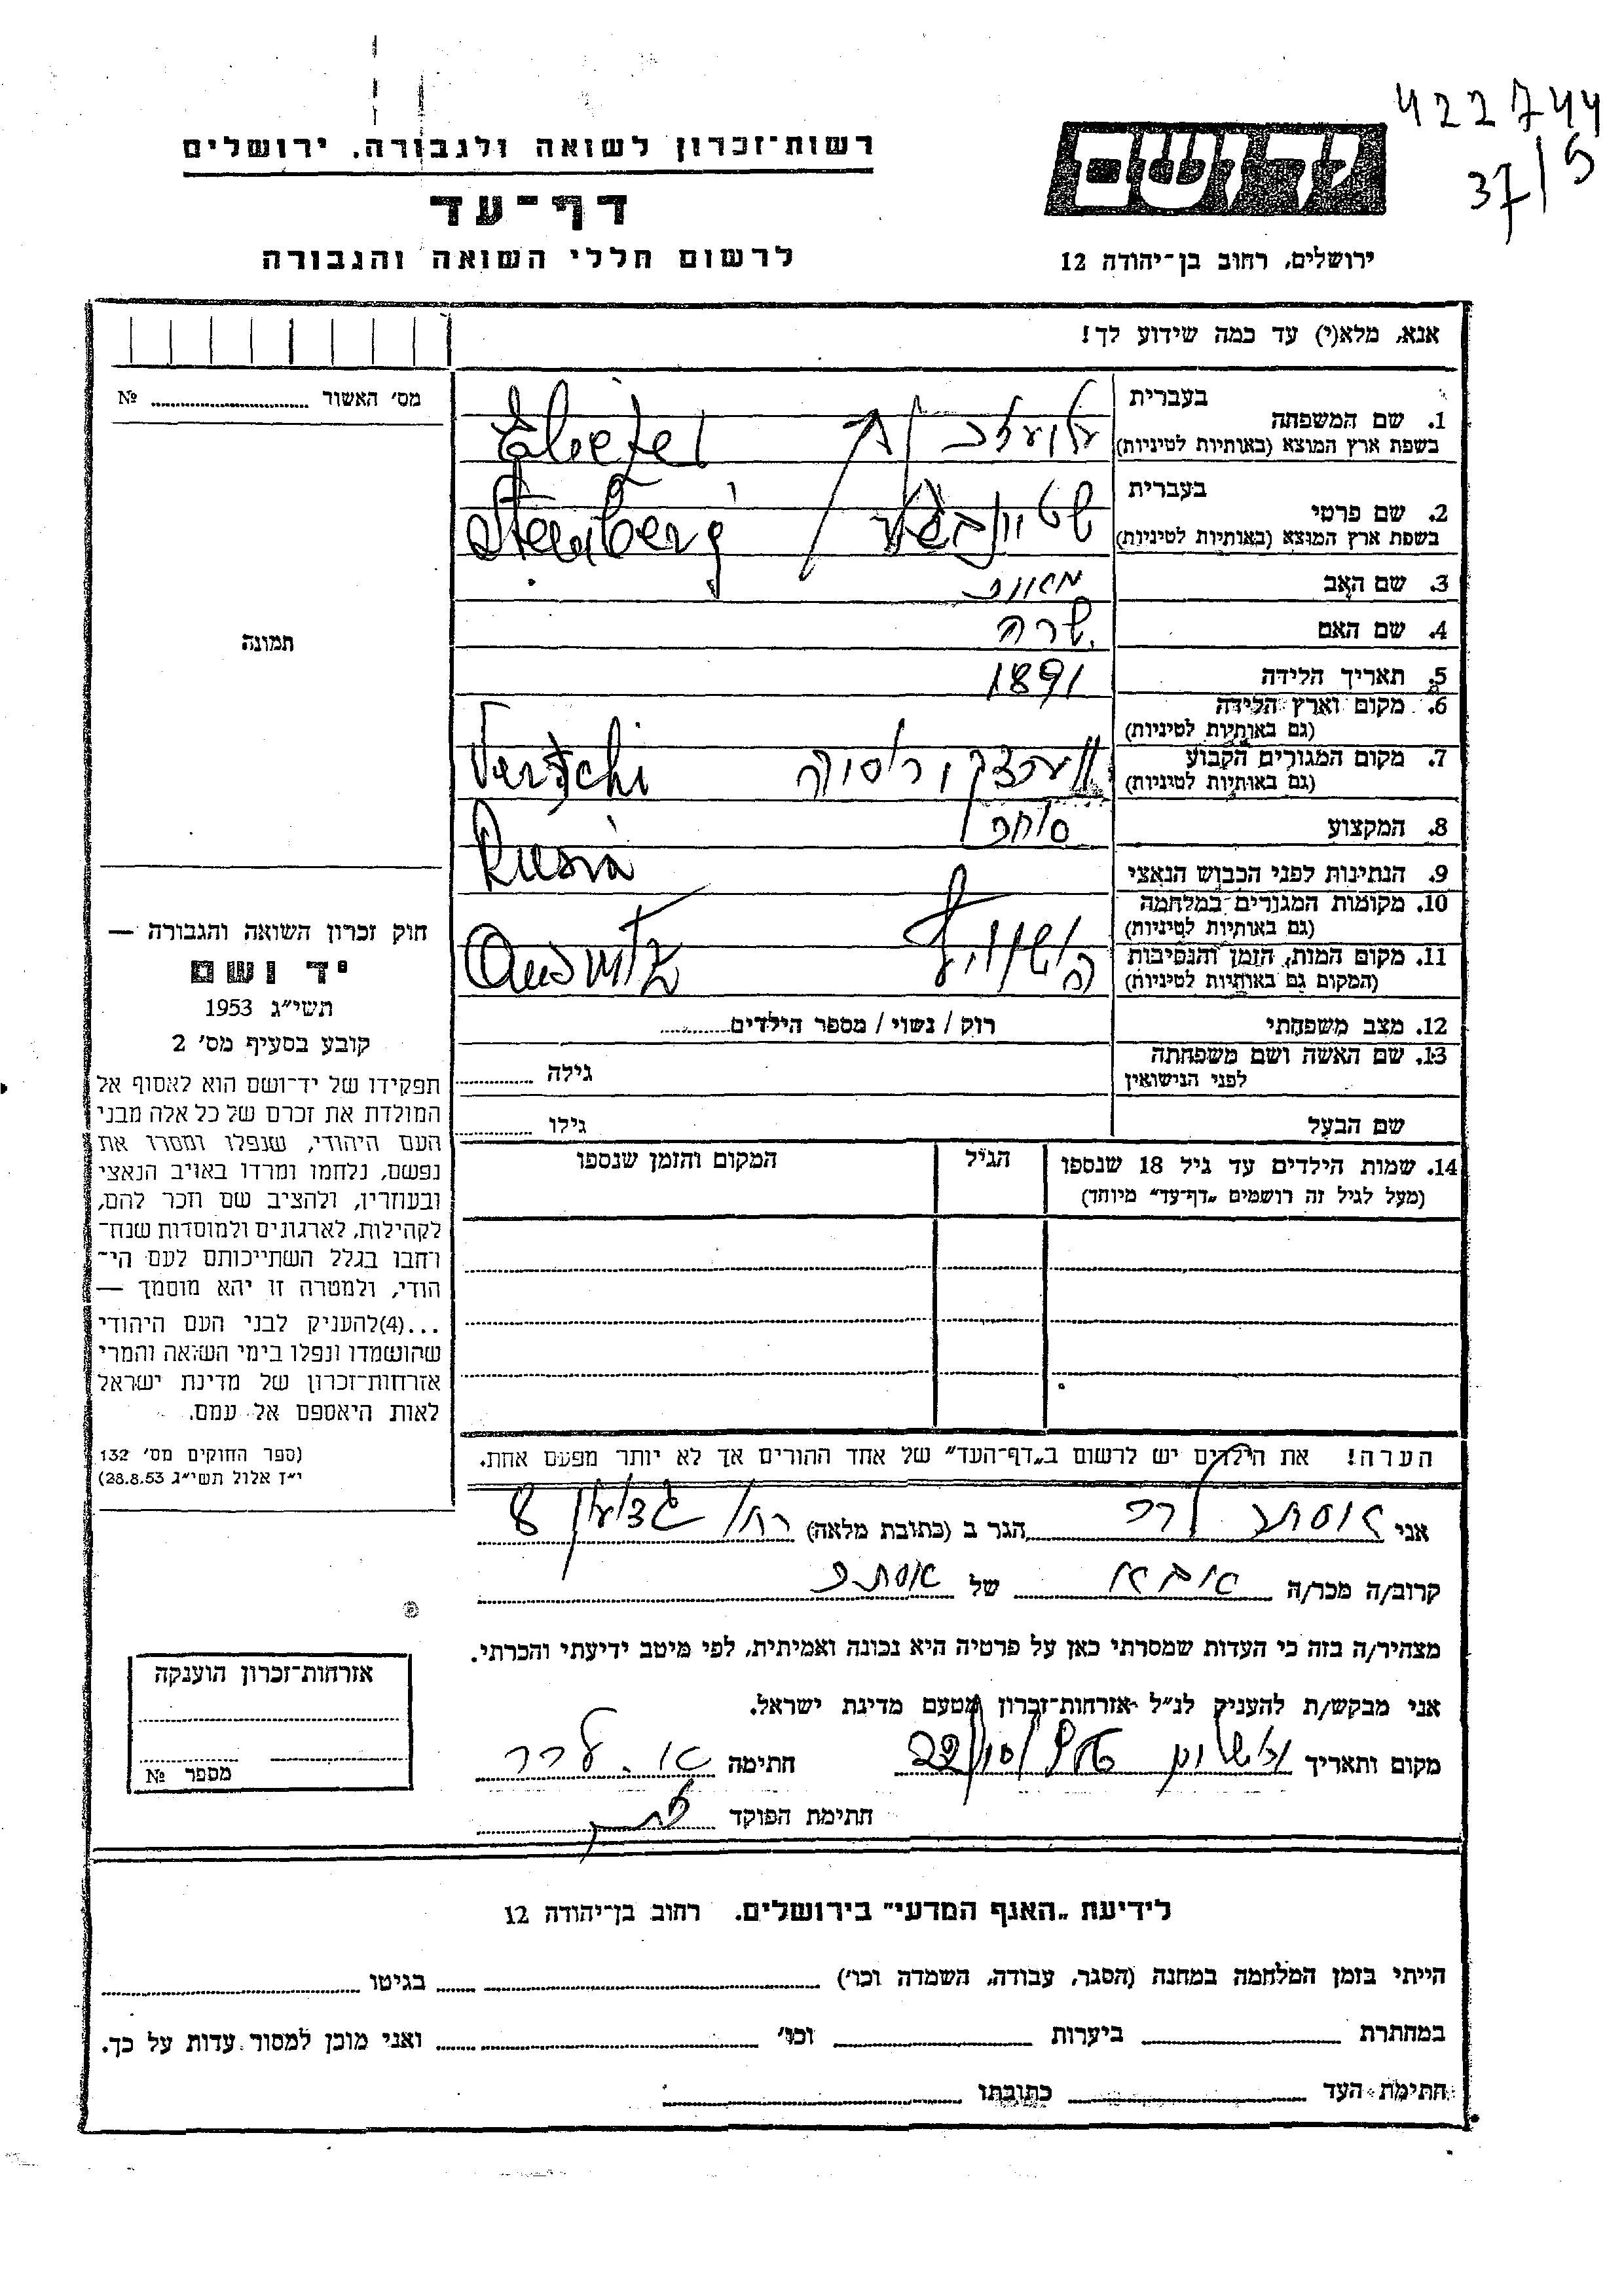 422744
37/5
יד ושם
ירושלים, רחוב בן־יהודה 12
רשות־זכרון לשואה ולגבורה, ירושלים
דף־עד
לרשום חללי השואה והגבורה
אנא, מלא(י) עד כמה שידוע לך!
מס' האשור № 
תמונה
חוק זכרון השואה והגבורה —
יד ושם
תשי״ג 1953
קובע בסעיף מס' 2
תפקידו של יד־ושם הוא לאסוף אל
המולדת את זכרם של כל אלה מבני
העם היהודי, שנפלו ומסרו את
נפשם, נלחמו ומרדו באויב הנאצי
ובעוזריו, ולהציב שם וזכר להם,
לקהילות, לארגונים ולמוסדות שנח־
רחבו בגלל השתייכותם לעם הי־
הודי, ולמטרה זו יהא מוסמך —
...(4)להעניק לבני העם היהודי
שהושמדו ונפלו בימי השואה והמרי
אזרחות־זכרון של מדינת ישראל
לאות היאספם אל עמם.
(ספר החוקים מס' 132
י״ז אלול תשי״ג 28.8.53)
1. שם המשפחה
בעברית
בשפת ארץ המוצא (באותיות לטיניות) Eliezer
2. שם פרטי
בעברית שטיינברג
בשפת ארץ המוצא (באותיות לטיניות) Steinberg
3. שם האב
4. שם האם שרה
5. תאריך הלידה 1891
6. מקום וארץ הלידה
(גם באותיות לטיניות)
7. מקום המגורים הקבוע
(גם באותיות לטיניות) רוסיה
8. המקצוע סוחר
9. הנתינות לפני הכבוש הנאצי Rusia
10. מקומות המגורים במלחמה
(גם באותיות לטיניות)
11. מקום המות, הזמן והנסיבות
(המקום גם באותיות לטיניות)
12. מצב משפחתי רוק / נשוי / מספר הילדים
13. שם האשה ושם משפחתה
לפני הנישואין גילה
שם הבעל גילו
14. שמות הילדים עד גיל 18 שנספו הגיל המקום והזמן שנספו
(מעל לגיל זה רושמים „דף־עד״ מיוחד)
הערה! את הילדים יש לרשום ב„דף־העד״ של אחד ההורים אך לא יותר מפעם אחת.
אני אסתר הגר ב (כתובת מלאה) רח' גדעון 8
קרוב/ה מכר/ה אבא של אסתר
מצהיר/ה בזה כי העדות שמסרתי כאן על פרטיה היא נכונה ואמיתית, לפי מיטב ידיעתי והכרתי.
אני מבקש/ת להעניק לנ״ל אזרחות־זכרון מטעם מדינת ישראל.
מקום ותאריך חתימה
חתימת הפוקד
אזרחות־זכרון הוענקה
מספר №
לידיעת „האגף המדעי״ בירושלים. רחוב בן־יהודה 12
הייתי בזמן המלחמה במחנה (הסגר, עבודה, השמדה וכו') בגיטו
במחתרת ביערות וכו' ואני מוכן למסור עדות על כך.
חתימת העד כתובתו